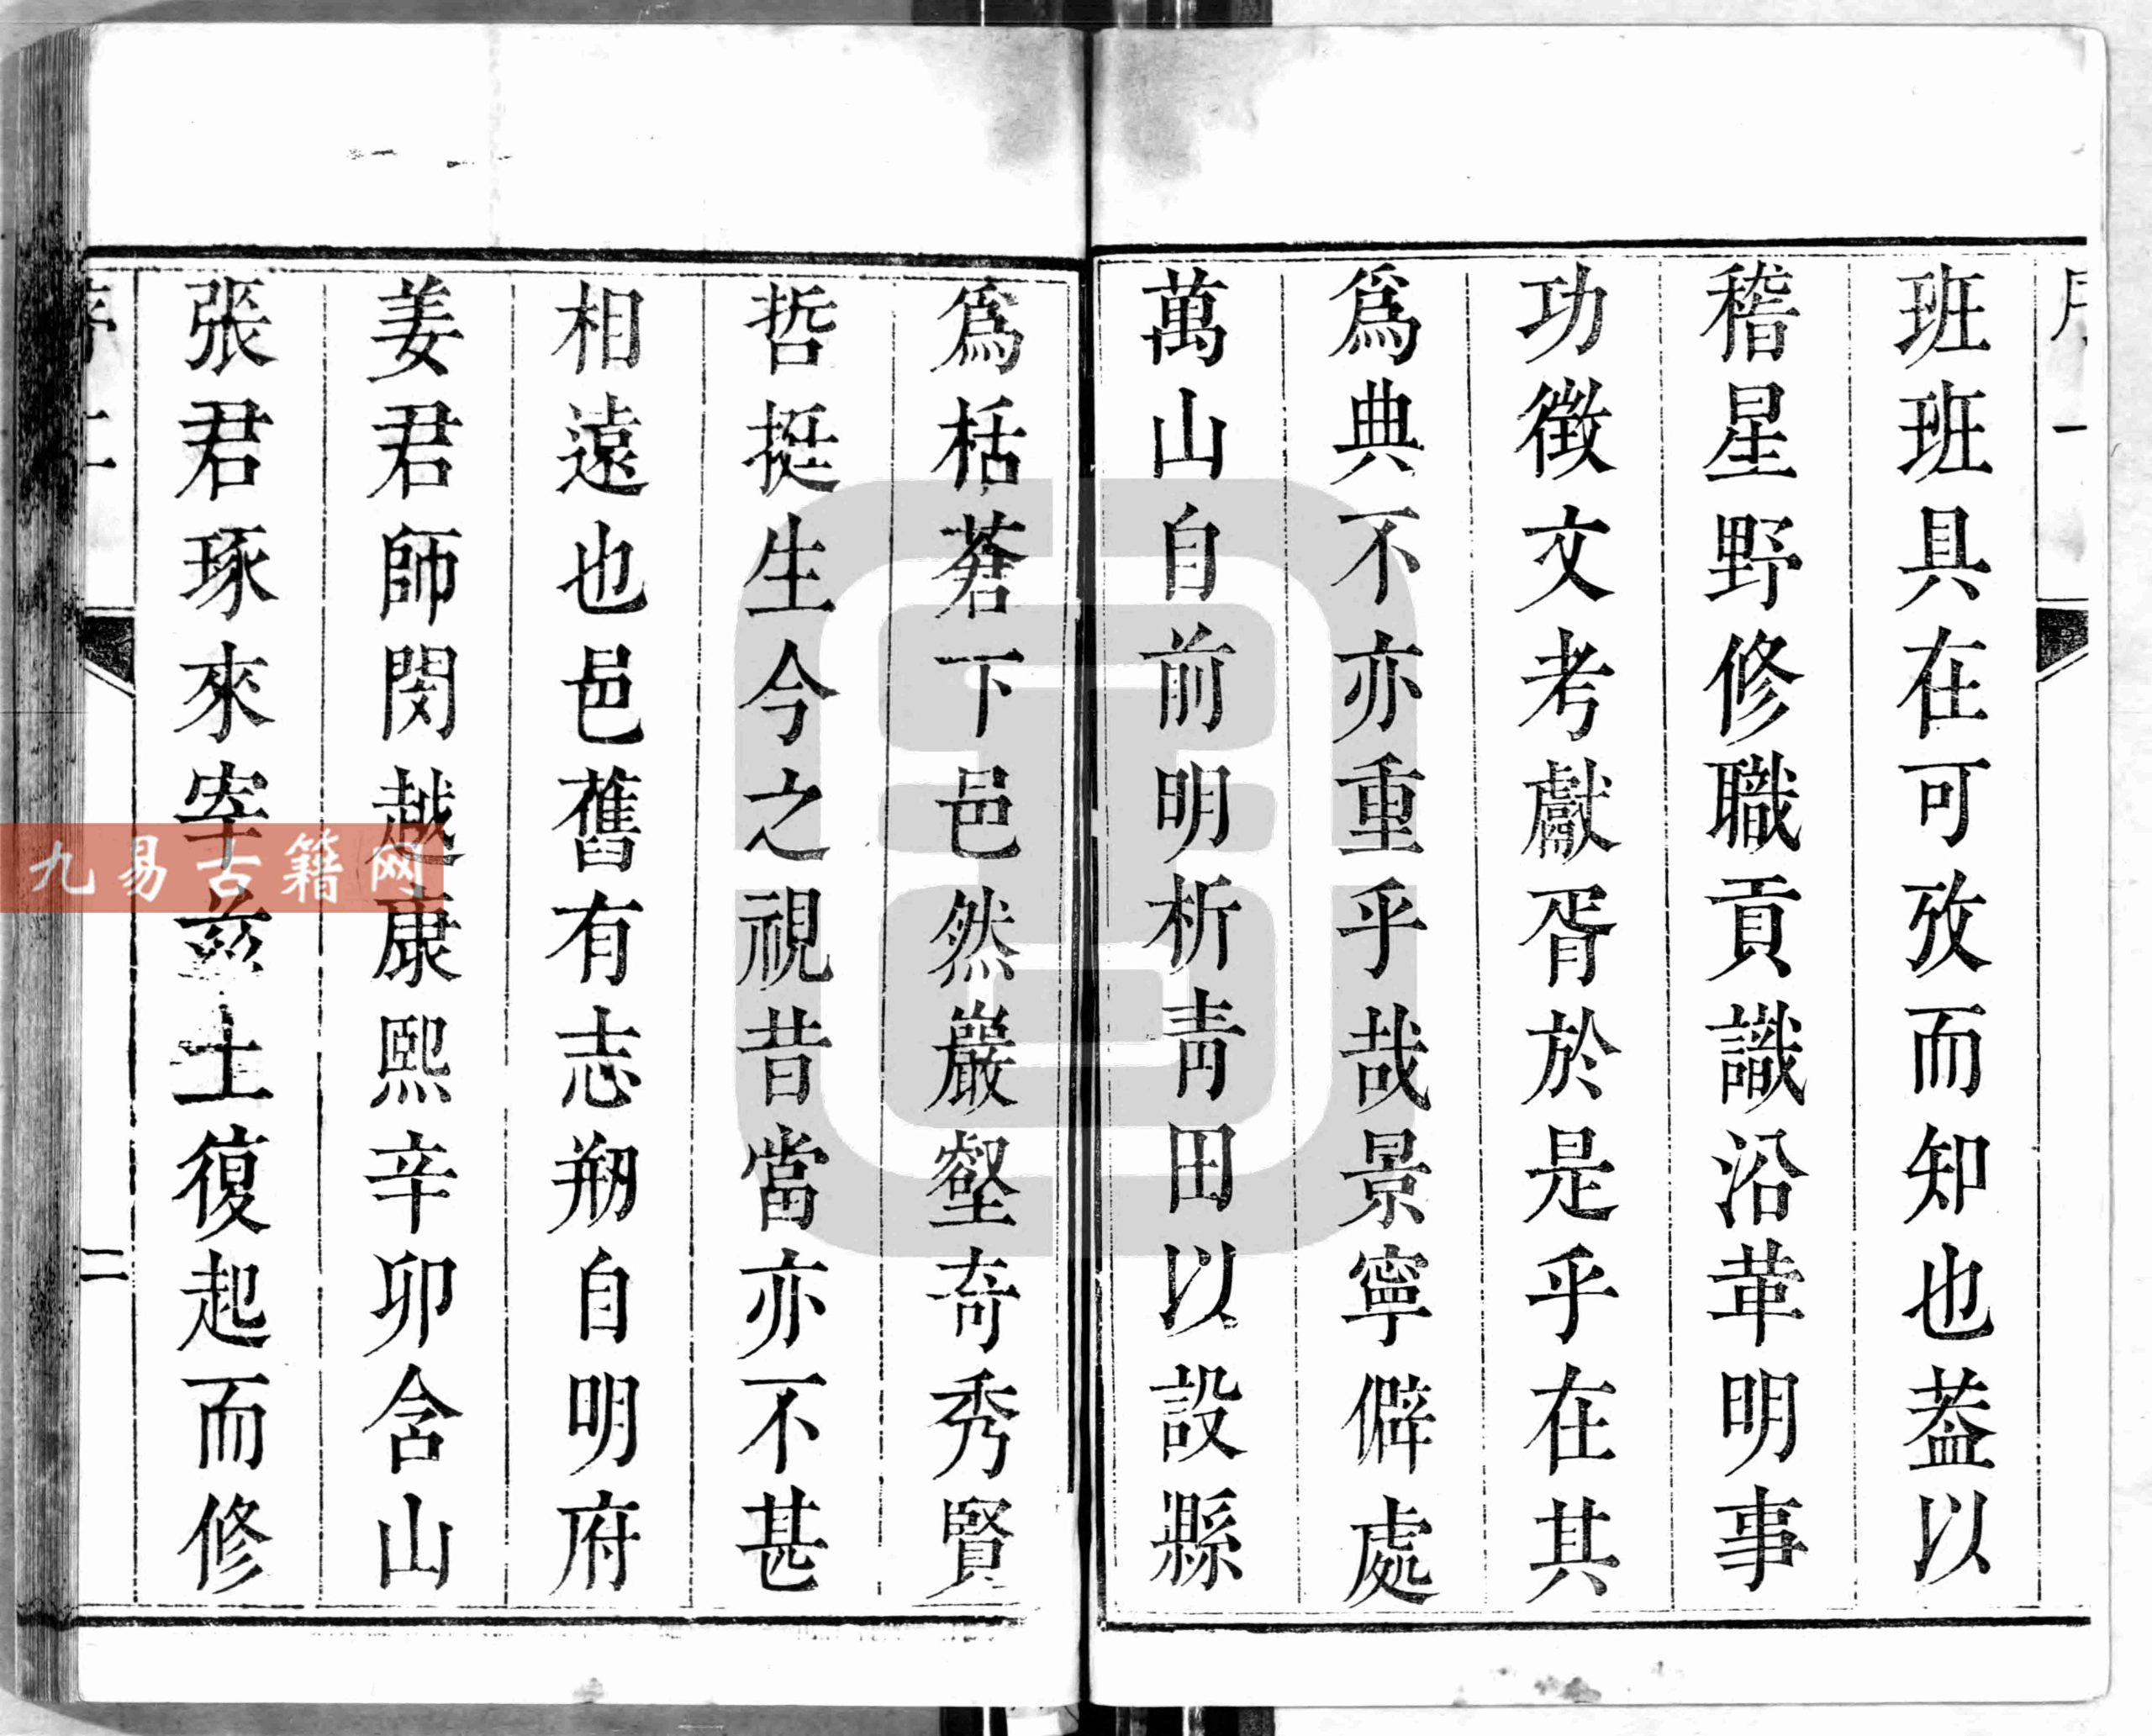 班班具在可攷而知也葢以
稽星野修職貢識沿革明事
功徴文考獻胥於是乎在其
爲典不亦重乎哉景寧僻處
萬山自前明析青田以設縣
爲栝蒼下邑然巖壑奇秀賢
哲挺生今之視昔當亦不甚
相遠也邑舊有志剏自明府
姜君師閔越康熙辛卯含山
張君琢來宰兹土復起而修
序上
二
九易古籍网